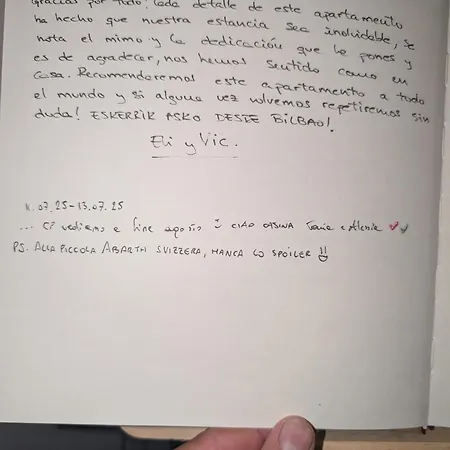 Gracias por todo! Cada detalle de este apartamento
ha hecho que nuestra estancia sea inolvidable, se
nota el mimo y la dedicación que le pones y
es de agradecer, nos hemos sentido como en
casa. Recomendaremos este apartamento a todo
el mundo y si alguna vez volvemos repetiremos sin
duda! ESKERRIK ASKO DESDE BILBAO!
Eli y Vic.
11.07.25-13.07.25
... Ci vediamo a fine agosto CIAO e
PS. ALLA PICCOLA ABARTH SVIZZERA, MANCA LO SPOILER !!